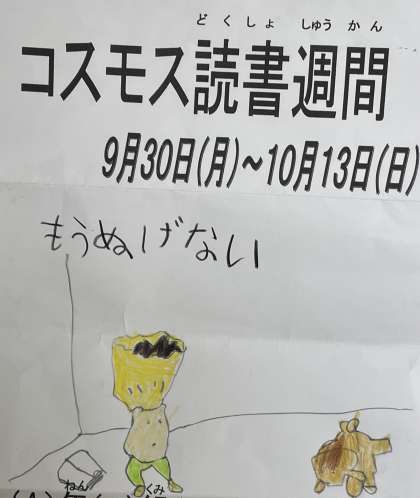 どくしょ しゅうかん
コスモス読書週間
9月30日(月)~10月13日(日)
もうぬげない
ねん くみ